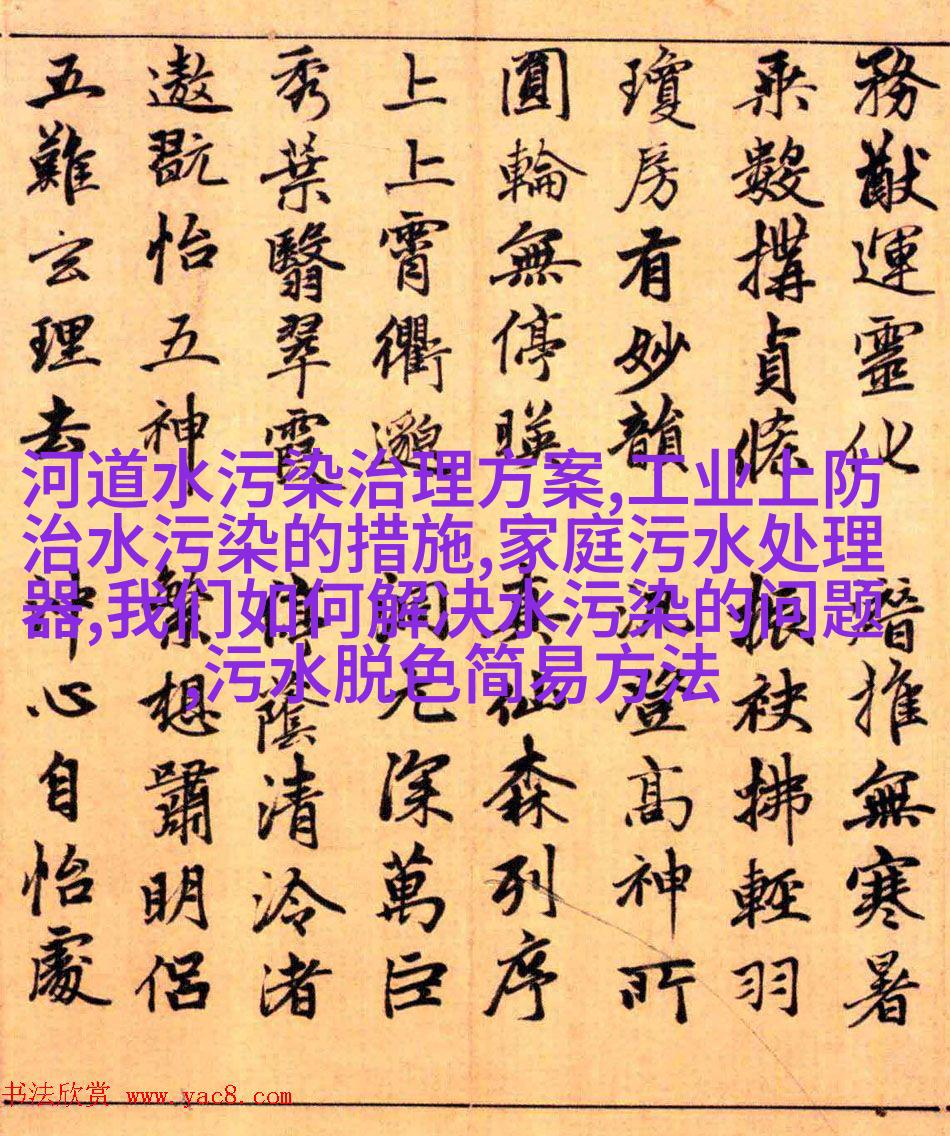 務猷運靈化 推無寒暑
乘數搆貞條 振袂拂輕羽
瓊房有妙韻 登高神所
圓輪無停暎 仙森列序
上上霄衢邈 洞元深萬巨
秀葉翳翠霞 陰清泠渚
遨翫怡五神 想嘯明侶
五難玄理去 沖心自怡處
河道水污染治理方案,工业上防
治水污染的措施,家庭污水处理
器,我们如何解决水污染的问题
,污水脱色简易方法
书法欣赏 www.yac8.com